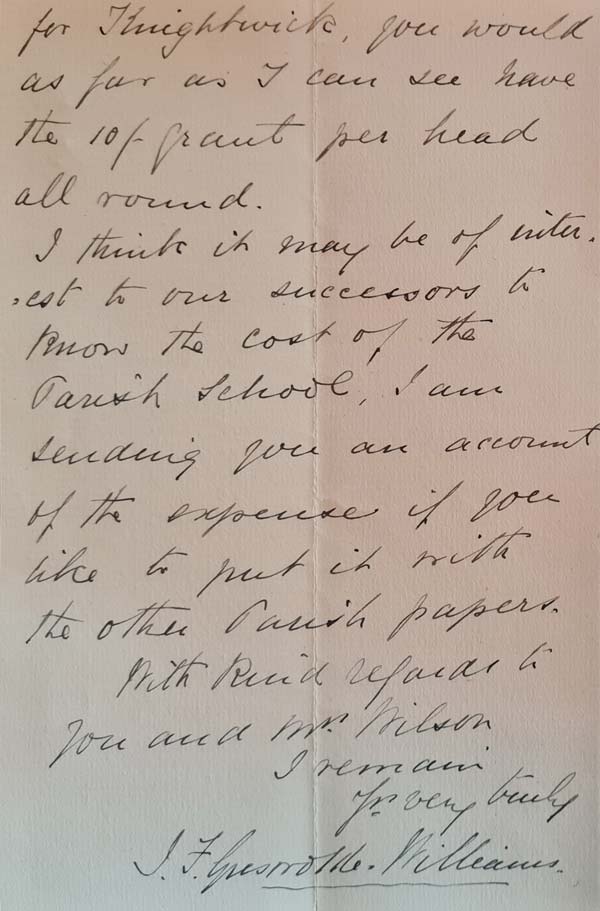 for Knightwick, you would
as far as I can see have
the 10/- grant per head
all round.
I think it may be of inter-
-est to our successors to
know the cost of the
Parish School, I am
sending you an account
of the expense if you
like to put it with
the other Parish papers.
With kind regards to
you and Mrs Wilson
I remain
Yrs very truly
J. F. Greswolde-Williams.